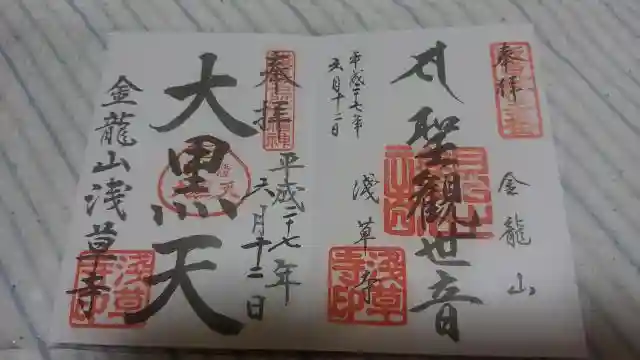 奉拝
金龍山
聖観世音
浅草寺
平成二十七年
六月十二日
浅草寺印
奉拝
平成二十七年
六月十二日
大黒天
金龍山浅草寺
浅草寺印